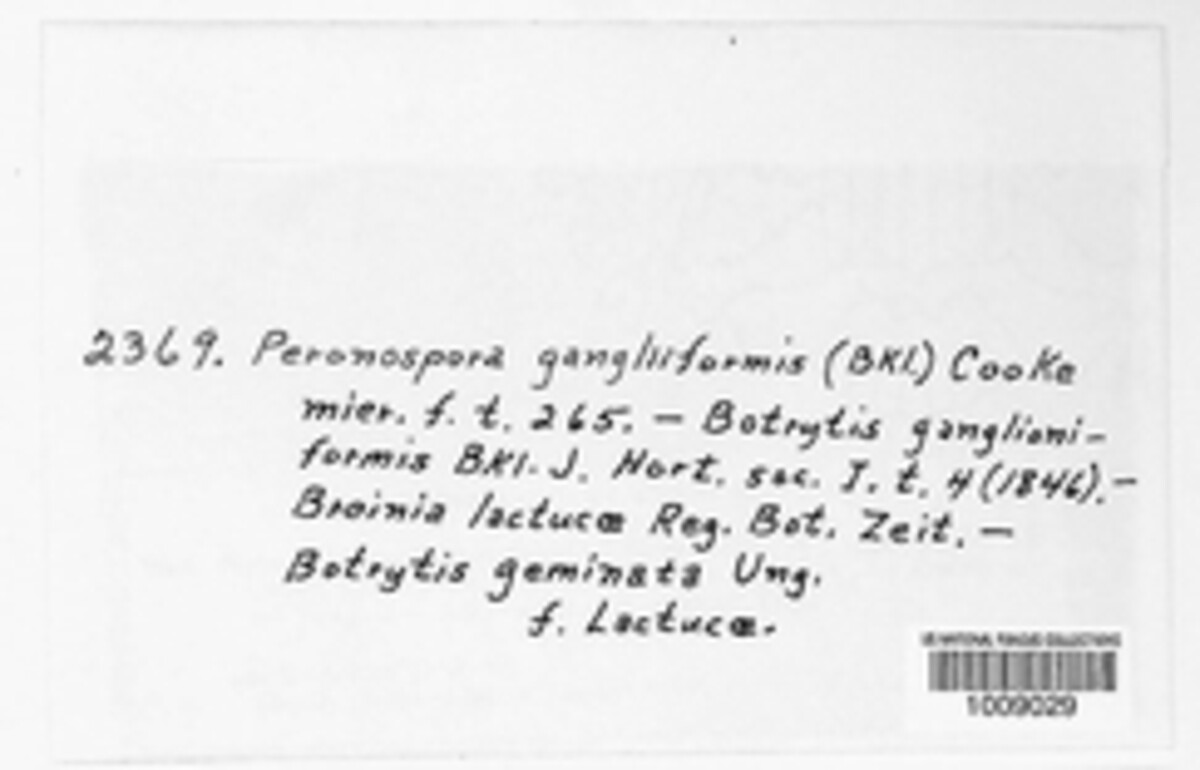 2369. Peronospora gangliiformis (BKl.) Cooke
micr. f. t. 265. — Botrytis ganglioni-
formis BKl. J. Hort. soc. I. t. 4 (1846). —
Breinia lactucæ Reg. Bot. Zeit. —
Botrytis geminata Ung.
f. Lactucæ.
US NATIONAL FUNGUS COLLECTIONS
1009029